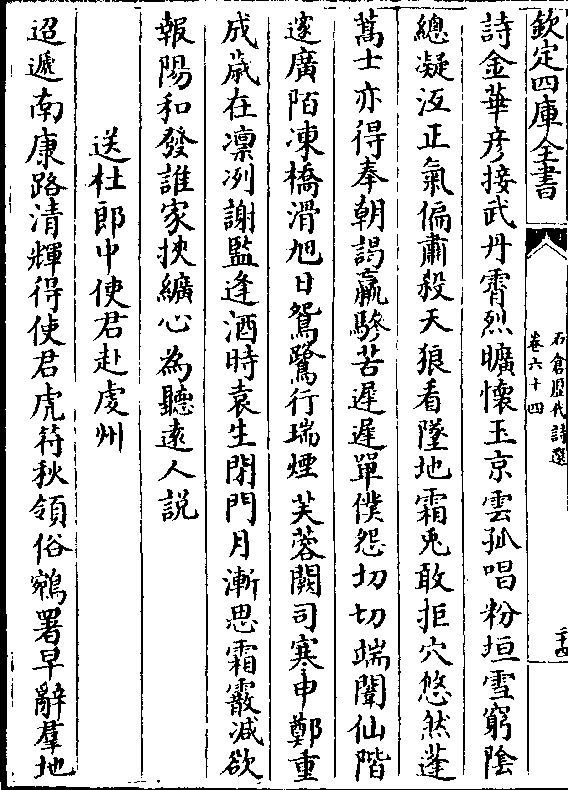 欽定四庫全書
石倉歷代詩選
卷六十四
二十四
詩金華彦接武丹霄烈曠懷玉京雲孤唱粉垣雪窮陰
總凝沍正氣偏肅殺天狼看墜地霜兎敢拒穴悠然蓬
蒿士亦得奉朝謁羸驂苦遲遲單僕怨切切端闈仙階
邃廣陌凍橋滑旭日鴛鷺行瑞煙芙蓉闕司寒申鄭重
成嵗在凛冽謝監逢酒時袁生閉門月漸思霜霰減欲
報陽和發誰家挾纊心為聽逺人説
送杜郎中使君赴䖍州
迢遞南康路清輝得使君虎符秋領俗鵷署早辭羣地